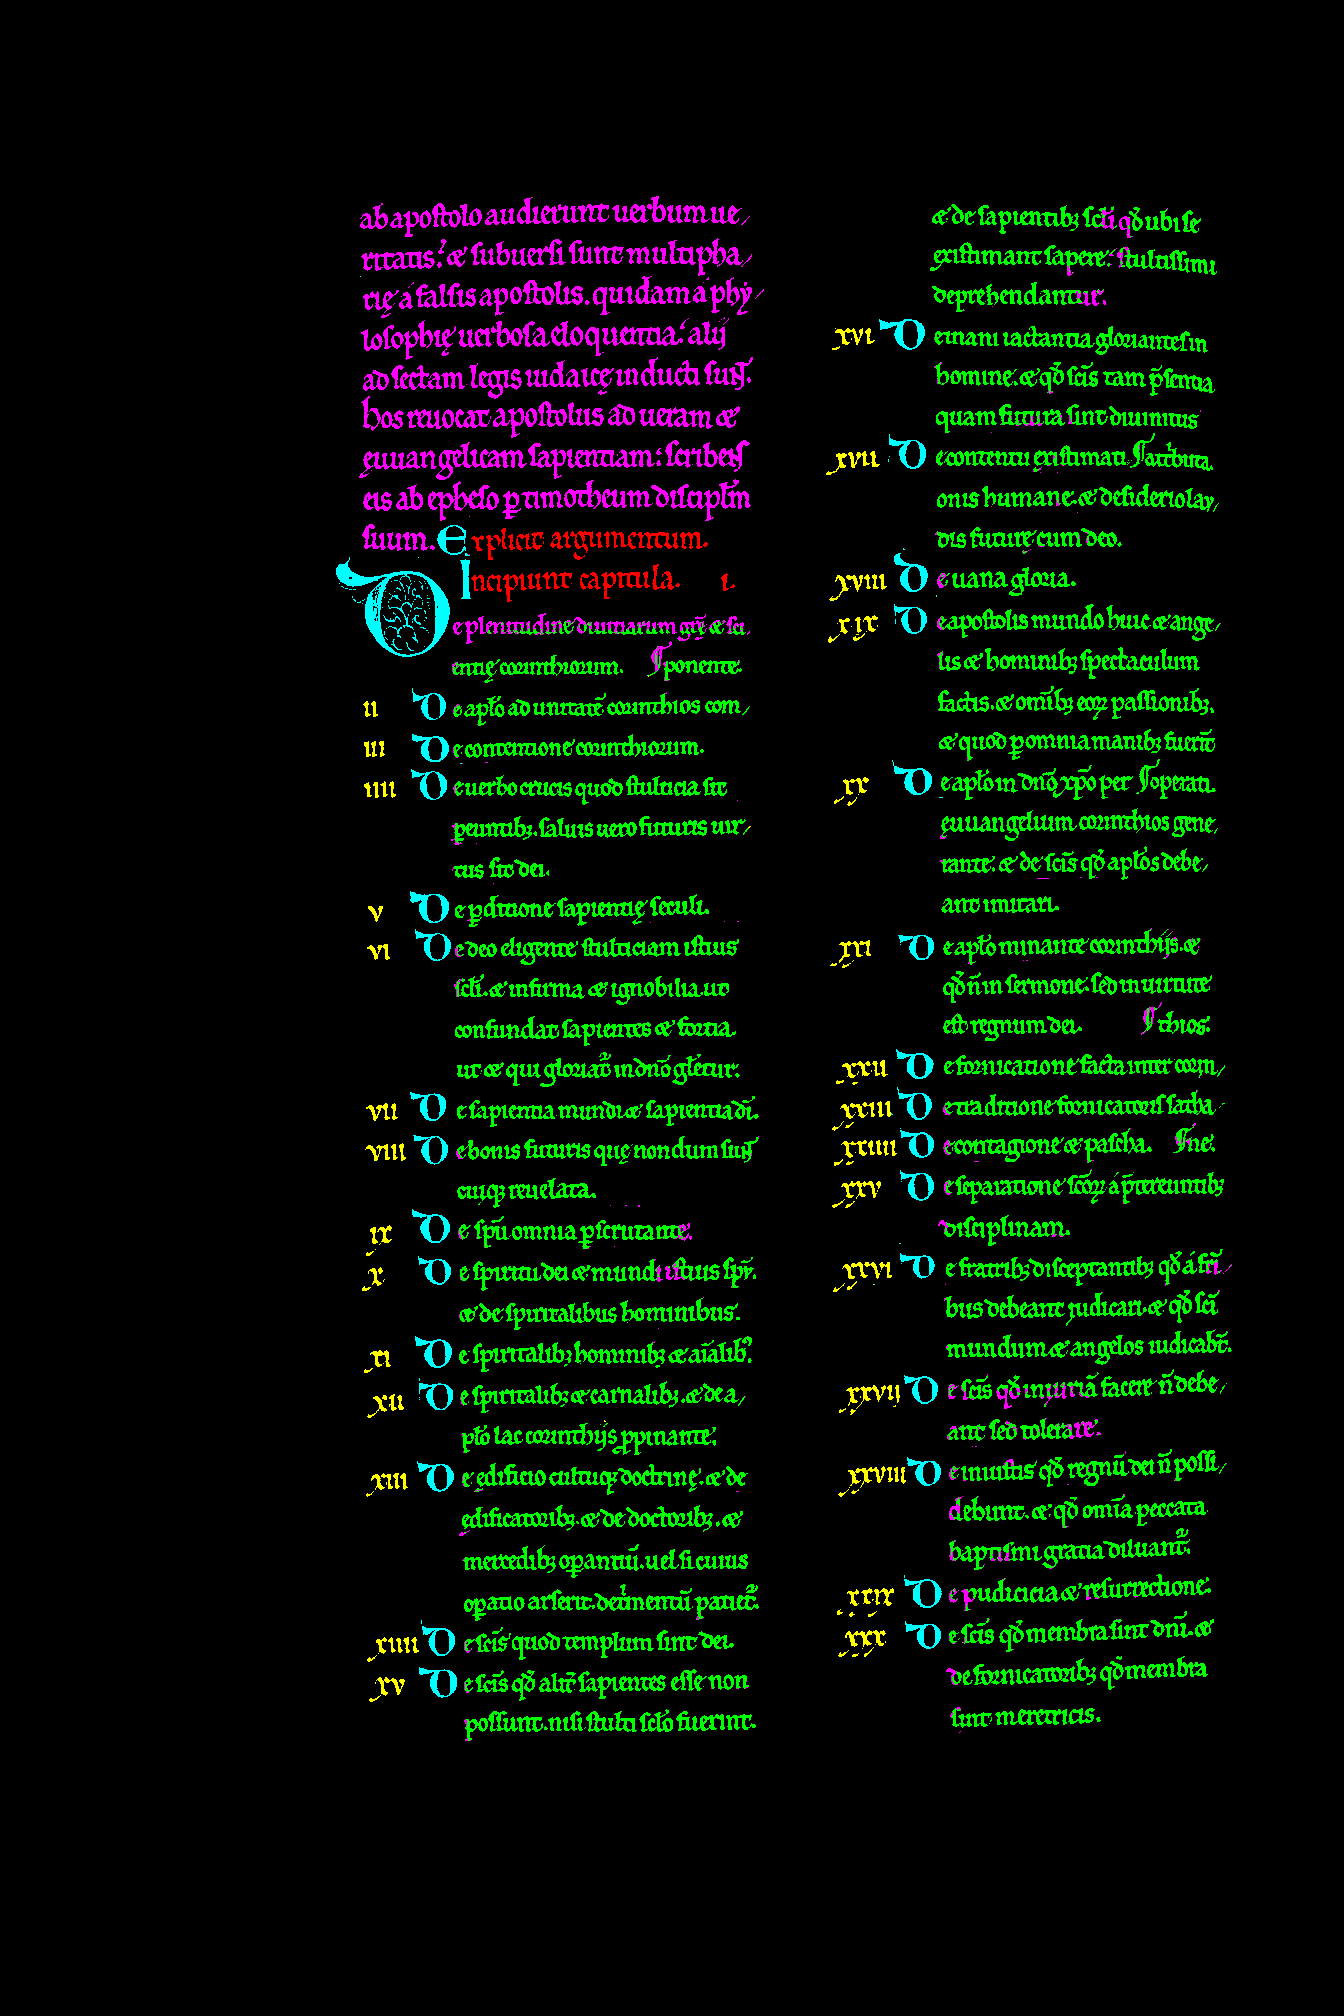 ab apostolo audierunt uerbum ue/
ritatis. & subuersi sunt multipha/
rię a falsis apostolis. quidam a phy/
losophię uerbosa eloquentia. alij
ad sectam legis iudaicę inducti sunt.
hos reuocat apostolus ad ueram &
ęuuangelicam sapientiam: scribens
eis ab epheso ꝑ timotheum discipłm
suum. Explicit argumentum.
Incipiunt capitula. i.
De plenitudine diuitiarum grę & sci
entię corinthiorum. ponente.
ii De apło ad unitatē corinthios com/
iii De contentione corinthiorum.
iiii De uerbo crucis quod stulticia sit
ꝑeuntibꝫ. saluis uero futuris uir/
tus sit dei.
v De ꝑditione sapientię seculi.
vi De deo eligente stulticiam istius
scłi. & infirma & ignobilia. ut
confundat sapientes & fortia.
ut & qui gloriat̄ in dnō głetur.
vii De sapientia mundi & sapientia dī.
viii De bonis futuris quę nondum sunt
cuiqꝫ reuelata.
ix De spū omnia ꝑscrutante.
x De spiritu dei & mundi istius spū.
& de spiritalibus hominibus.
xi De spiritalibꝫ hominibꝫ & aīalibꝫ.
xii De spiritalibꝫ & carnalibꝫ. & de a/
pło lac corinthijs ꝓpinante.
xiii De ędificio cultuqꝫ doctrinę. & de
ędificatoribꝫ. & de doctoribꝫ. &
mercedibꝫ oꝑantiū. uel si cuius
oꝑatio arserit. detimentū patiet̄.
xiiii De scīs quod templum sint dei.
xv De scīs qđ alit̄ sapientes esse non
possunt. nisi stulti scło fuerint.
& de sapientibꝫ scłi qđ ubi se
existimant sapere. stultissimi
deprehendantur.
xvi De inani iactantia gloriantes in
homine. & qđ scīs tam p̄sentia
quam futura sint diuinitus
xvii De contentu existimati attributa.
onis humane. & desiderio lau/
dis futurę cum deo.
xviii De uana gloria.
xix De apostolis mundo huic & ange/
lis & hominibꝫ spectaculum
factis. & omībꝫ eoꝝ passionibꝫ.
& quod ꝑ omnia manibꝫ fuerīt
xx De apło in dnō xp̄o per operati.
ęuuangelium corinthios gene/
rante. & de scīs qđ apłos debe/
ant imitari.
xxi De apło minante corinthijs. &
qđ n̄ in sermone. sed in uirtute
est regnum dei. thios.
xxii De fornicatione facta inter corin/
xxiii De traditione fornicatoris satha/
xxiiii De contagione & pascha. ne.
xxv De separatione scōꝝ a p̄tereuntibꝫ
disciplinam.
xxvi De fratribꝫ disceptantibꝫ qđ a frī/
bus debeant iudicari. & qđ scī
mundum & angelos iudicabt̄.
xxvii De scīs qđ iniuriā facere n̄ debe/
ant sed tolerare.
xxviii De iniustis qđ regnū dei n̄ possi/
debunt. & qđ omīa peccata
baptismi gratia diluant̄.
xxix De pudicicia & resurrectione.
xxx De scīs qđ membra sint dnī. &
de fornicatoribꝫ qđ membra
sint meretricis.